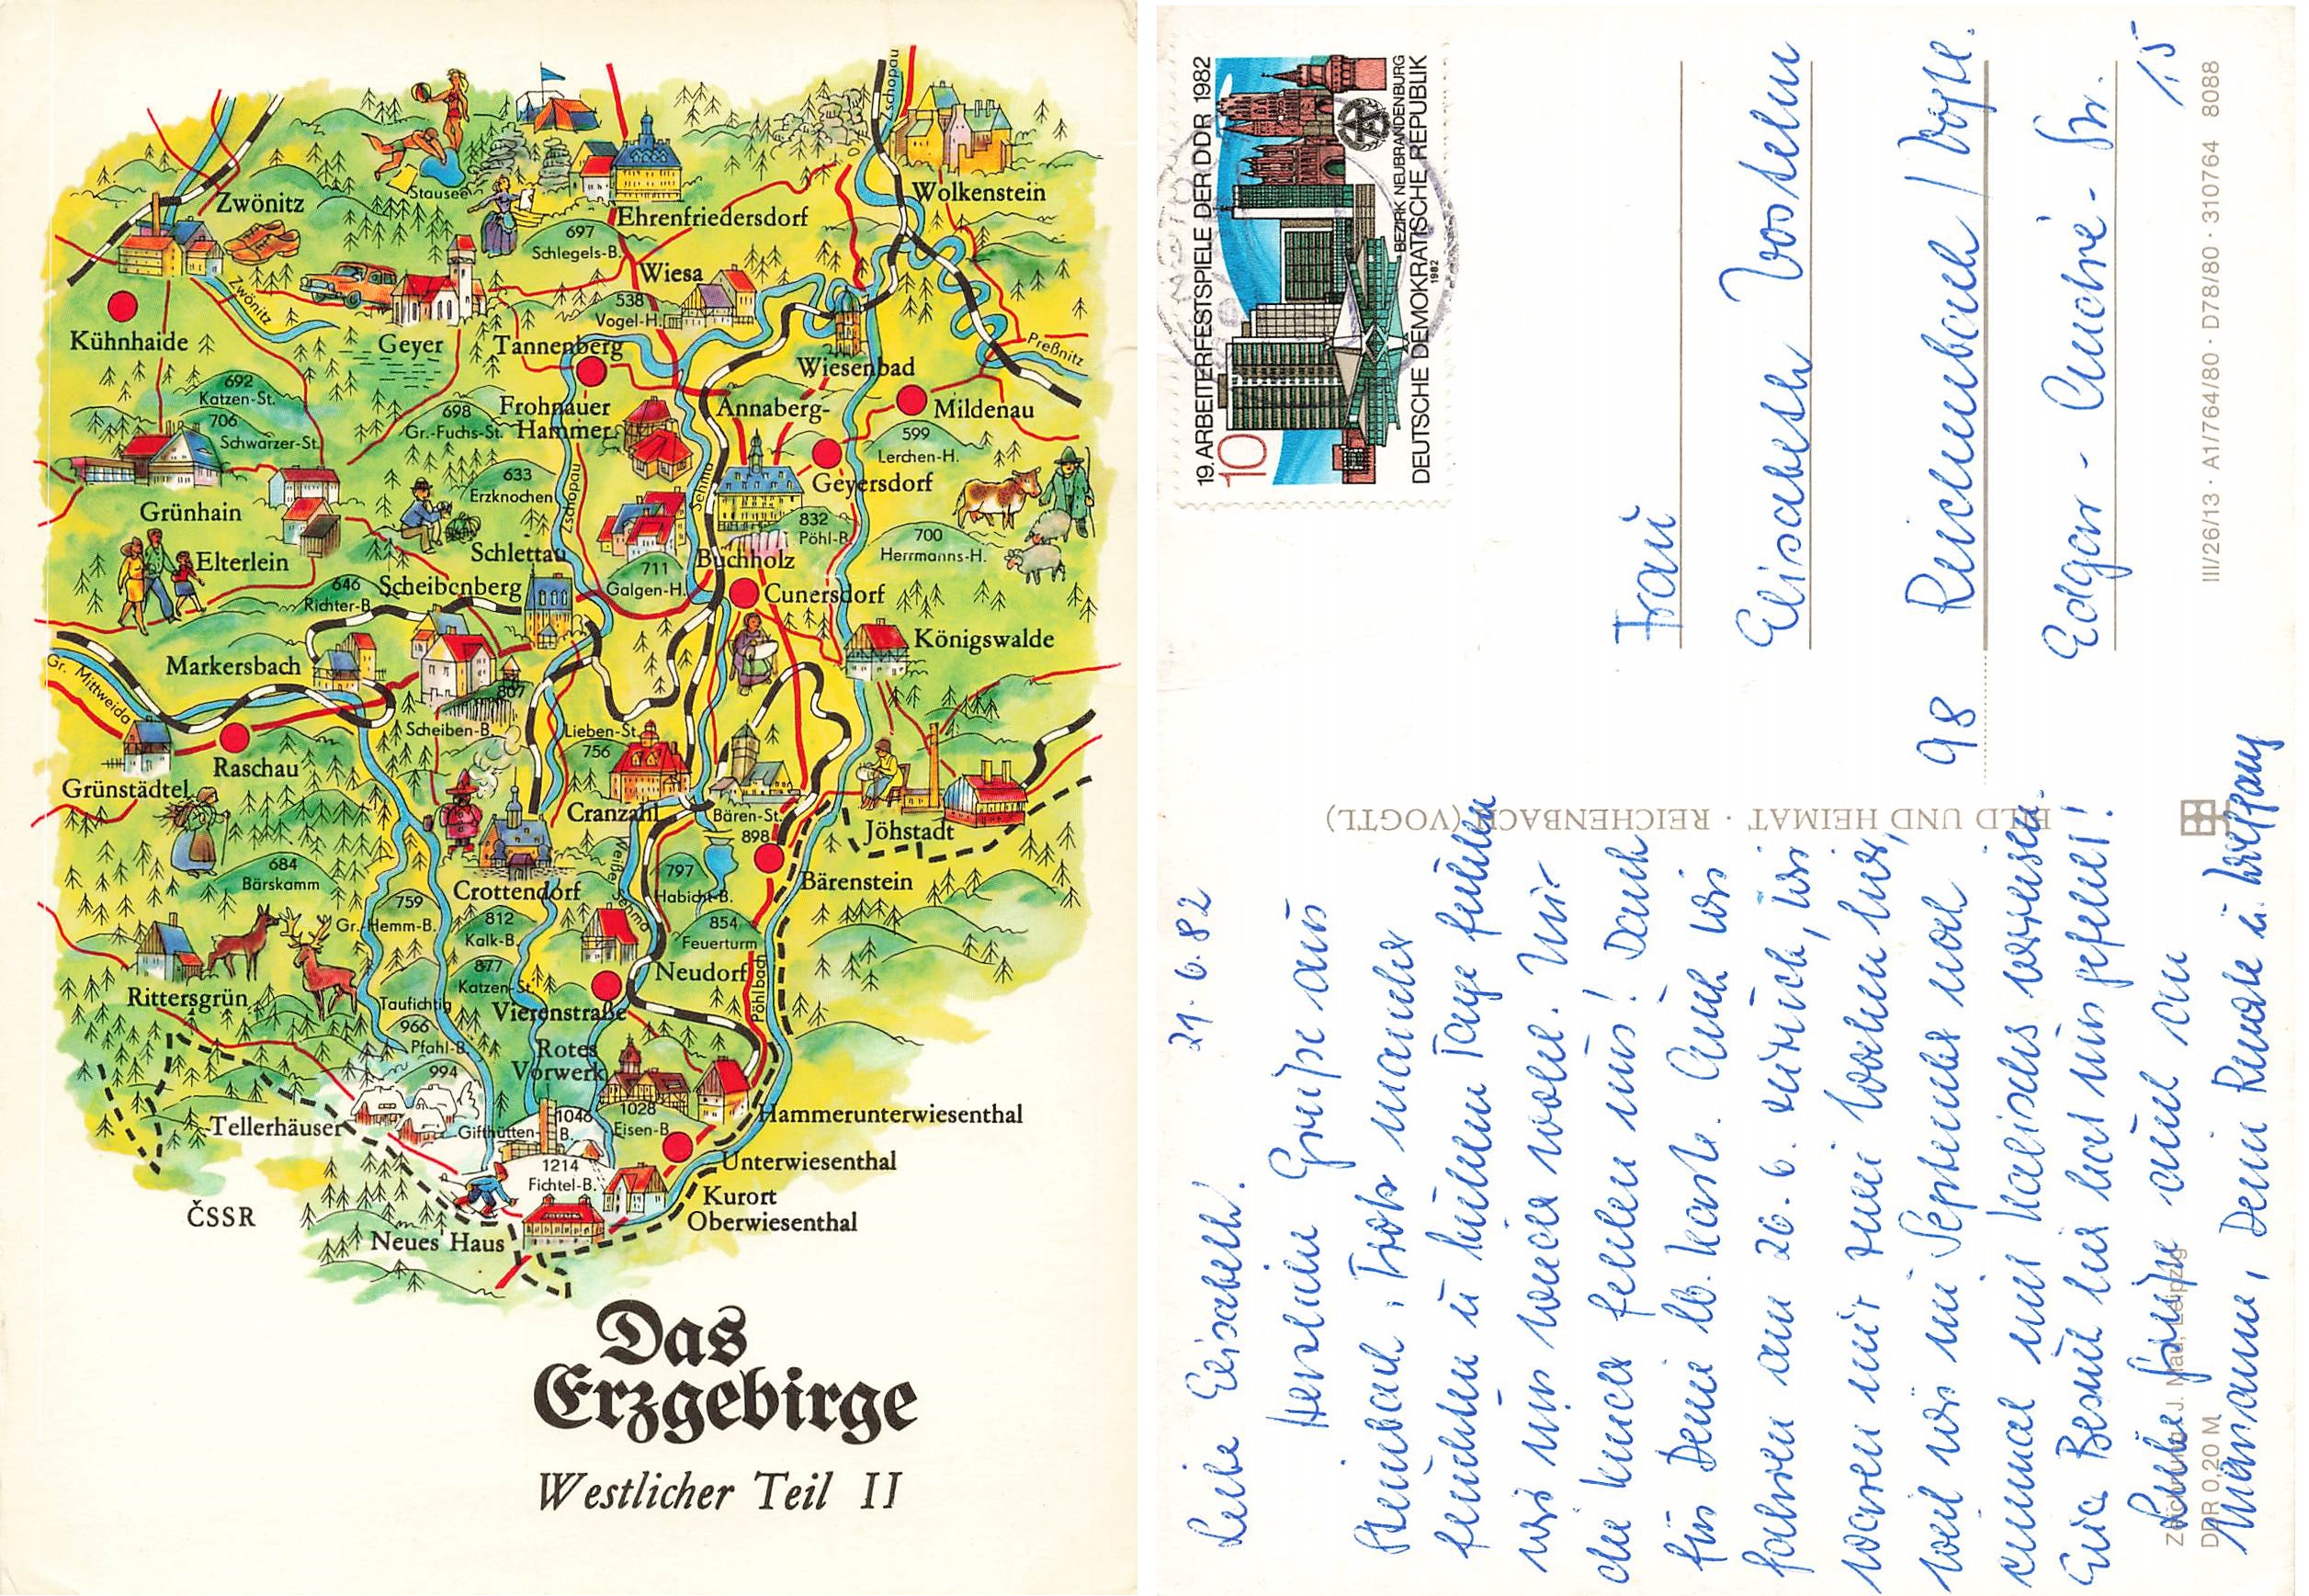 Zschopau
Zwönitz
Stausee
Wolkenstein
Ehrenfriedersdorf
697
Schlegels-B.
Wiesa
Zwönitz
538
Vogel-H.
Kühnhaide
Geyer
Tannenberg
Preßnitz
Wiesenbad
692
Katzen-St.
706
Schwarzer-St.
698
Gr.-Fuchs-St.
Frohnauer
Hammer
Annaberg-
Mildenau
599
Lerchen-H.
633
Erzknochen
Zschopau
Sehma
Geyersdorf
Grünhain
832
Pöhl-B.
700
Herrmanns-H.
Elterlein
Schlettau
Buchholz
711
Galgen-H.
646
Richter-B.
Scheibenberg
Cunersdorf
Königswalde
Markersbach
Gr. Mittweida
807
Scheiben-B.
Lieben-St.
756
Raschau
Grünstädtel
Cranzahl
Bären-St.
898
Jöhstadt
684
Bärskamm
Crottendorf
Weiße Sehma
797
Habicht-B.
Bärenstein
759
Gr.-Hemm-B.
812
Kalk-B.
854
Feuerturm
877
Katzen-St.
Neudorf
Pöhlbach
Rittersgrün
Taufichtig
966
Pfahl-B.
Vierenstraße
994
Rotes
Vorwerk
Tellerhäuser
Gifthütten-
B.
1046
1028
Eisen-B.
Hammerunterwiesenthal
1214
Fichtel-B.
Unterwiesenthal
Kurort
Oberwiesenthal
ČSSR
Neues Haus
Das
Erzgebirge
Westlicher Teil II
21.6.82
Liebe Elisabeth!
Herzliche Grüße aus
Steinbach. Trotz mancher
feuchten u. kühlen Tage fühlen
wir uns hier wohl. Nur
die Kinder fehlen uns! Dank
für Deine lb. Karte. Auch wir
fahren am 26.6. zurück, wir
waren nur zwei Wochen hier,
weil wir im September noch
einmal mit Kalischs verreisen.
Euer Besuch hier hat uns gefreut!
Liebe Grüße auch an
Marianne, Deine Renate u. Wolfgang
19. ARBEITERFESTSPIELE DER DDR 1982
10
BEZIRK NEUBRANDENBURG
DEUTSCHE DEMOKRATISCHE REPUBLIK
1982
Frau
Elisabeth Vosteln
98 Reichenbach / Vogtl.
Edgar-André-Str. 15
BILD UND HEIMAT · REICHENBACH (VOGTL)
III/26/13 · A1/764/80 · D78/80 · 310764 8088
Zeichnung: J. Nau, Leipzig
DDR 0,20 M